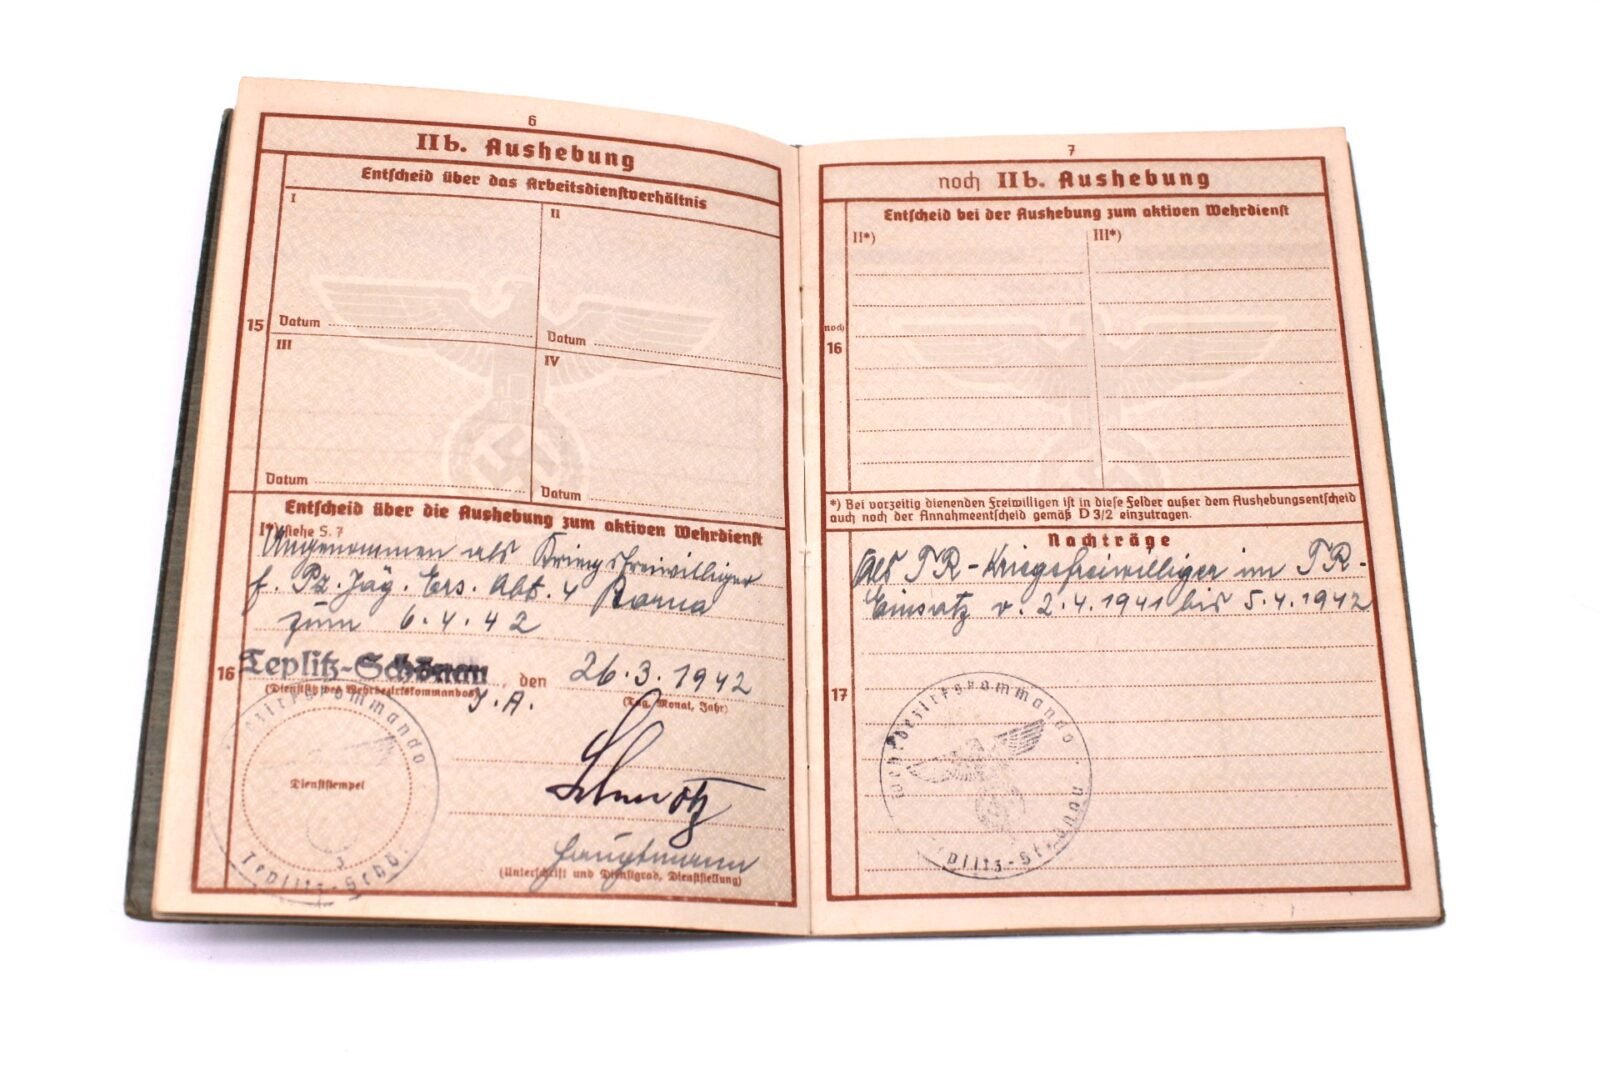 6
IIb. Aushebung
Entscheid über das Arbeitsdienstverhältnis
I
II
15
Datum
Datum
III
IV
Datum
Datum
Entscheid über die Aushebung zum aktiven Wehrdienst
I*) siehe S. 7
Angenommen als Kriegsfreiwilliger
f. Pz. Jäg. Ers. Abt. 4 Borna
zum 6.4.42
16
Teplitz-Schönau den 26.3.1942
(Dienstsitz des Wehrbezirkskommandos)
(Tag, Monat, Jahr)
J.A.
Dienststempel
Hauptmann
(Unterschrift und Dienstgrad, Dienststellung)
7
noch IIb. Aushebung
Entscheid bei der Aushebung zum aktiven Wehrdienst
II*)
III*)
noch
16
*) Bei vorzeitig dienenden Freiwilligen ist in diese Felder außer dem Aushebungsentscheid
auch noch der Annahmeentscheid gemäß D 3/2 einzutragen.
Nachträge
Als TR-Kriegsfreiwilliger im TR-
Einsatz v. 2.4.1941 bis 5.4.1942
17
Wehrbezirkskommando